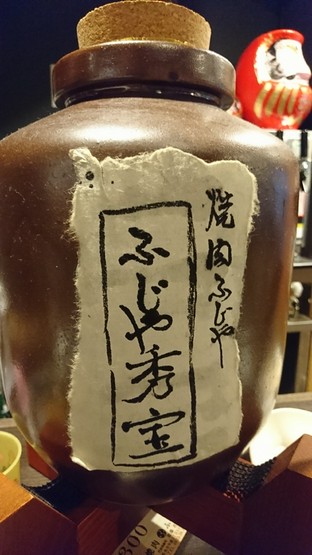 焼肉ふじや
ふじや秀宝
300